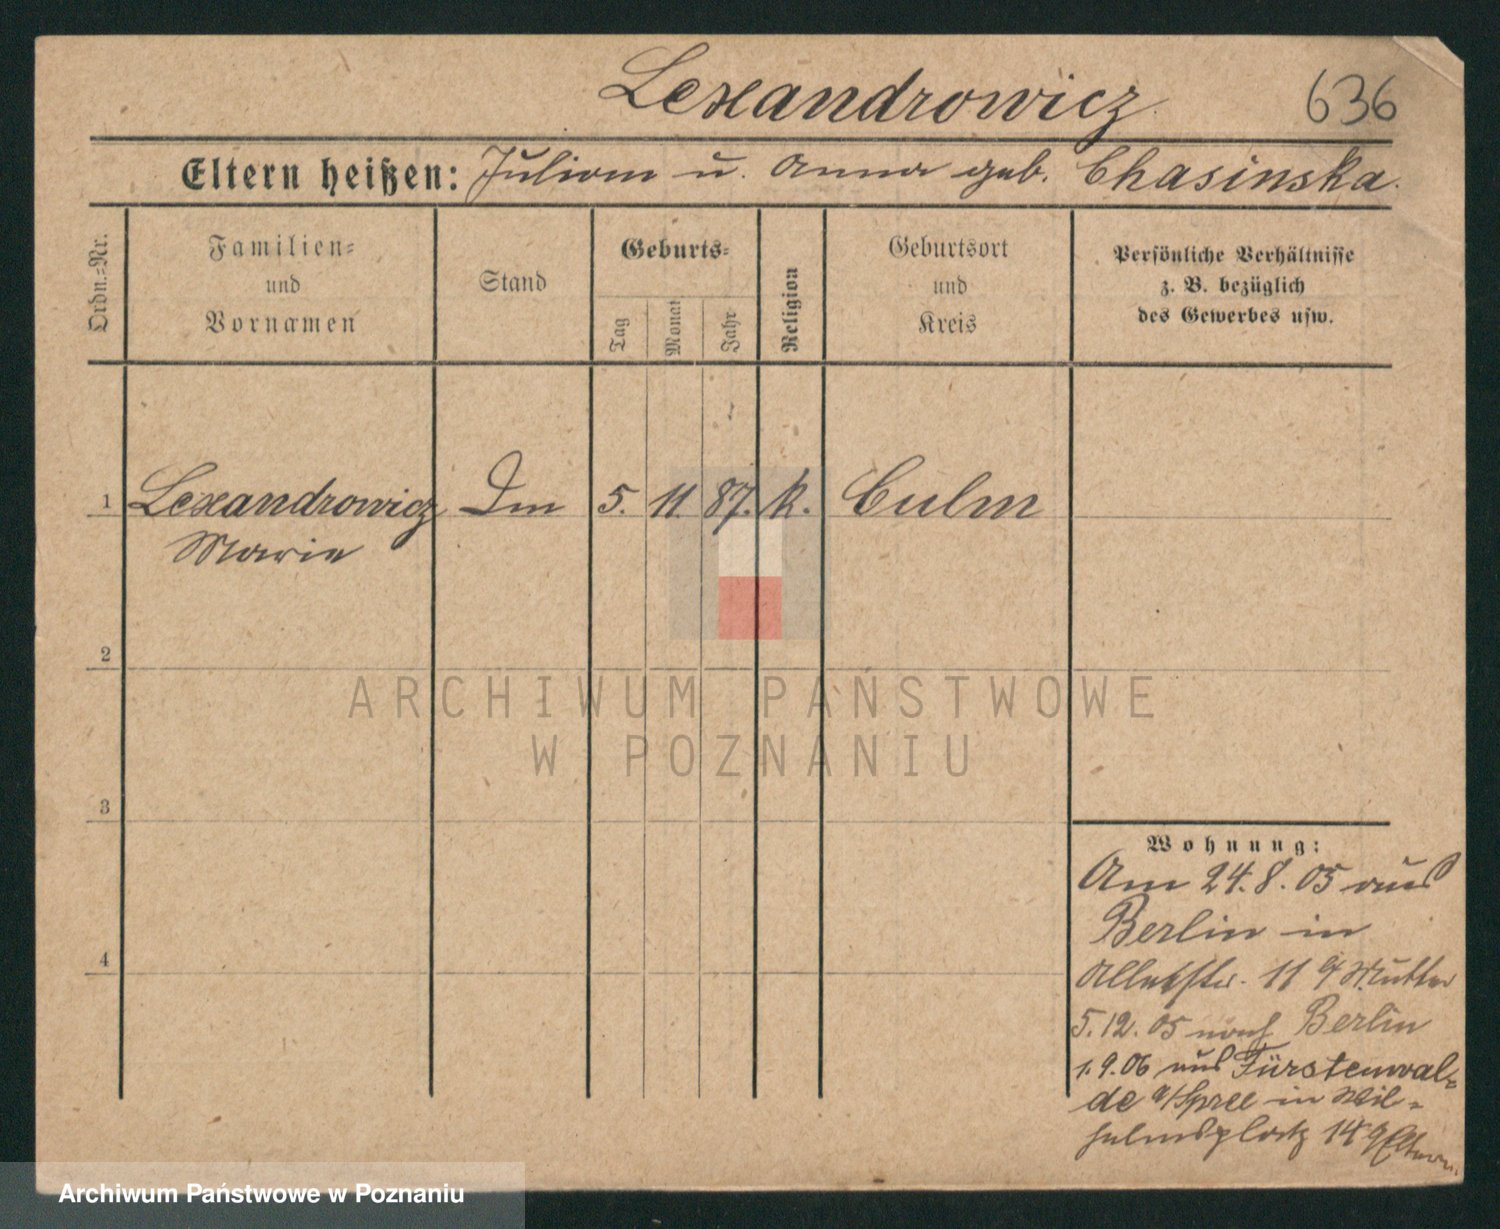 Lexandrowicz 636
Eltern heißen: Julian u. Anna geb. Chasinska.
Ordn.=Nr.
Familien=
und
Vornamen
Stand
Geburts=
Tag
Monat
Jahr
Religion
Geburtsort
und
Kreis
Persönliche Verhältnisse
z. B. bezüglich
des Gewerbes usw.
1 Lexandrowicz 5. 11. 87. k. Culm
Marie
2
ARCHIWUM PAŃSTWOWE
W POZNANIU
3
Wohnung:
Am 24.8.05 aus
Berlin in
11 Mutter
4
5.12.05 nach Berlin
1.9.06 aus Fürstenwal=
de a/Spree in Wil=
helmsplatz 14
Archiwum Państwowe w Poznaniu